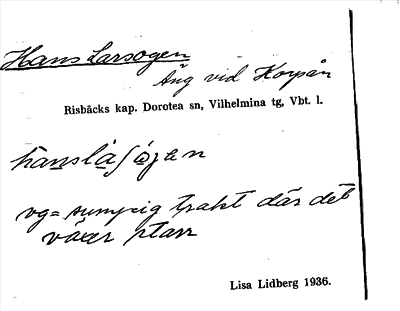 Hans Larsogen
Äng vid Korpån
Risbäcks kap. Dorotea sn, Vilhelmina tg, Vbt. l.
vg = sumpig trakt där det
växer starr
Lisa Lidberg 1936.